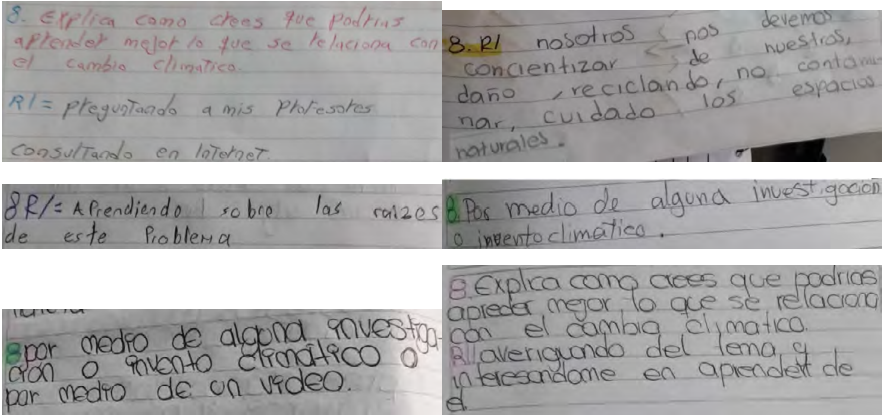 8. Explica como crees que podrias
aprender mejor lo que se relaciona con
el cambio climatico.
R/= preguntando a mis profesores
consultando en internet
8. R/ nosotros nos devemos
concientizar de nuestros,
daño, reciclando, no contami-
nar, cuidado los espacios
naturales.
8R/= Aprendiendo sobre las raizes
de este Problema
8. Por medio de alguna investigacion
o invento climatico.
8 por medio de alguna investiga-
cion o invento climático o
por medio de un video.
8. Explica como crees que podrias
apreder mejor lo que se relaciona
con el cambia climatico.
R/ averiguando del tema y
interesandome en aprender de
el